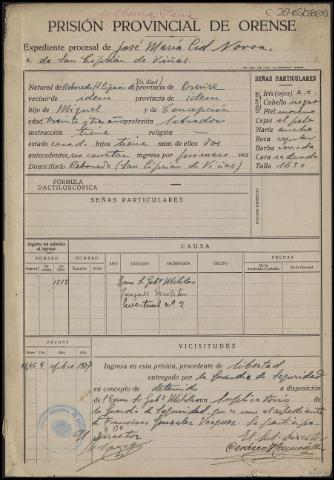 PRISIÓN PROVINCIAL DE ORENSE
Expediente procesal de José María Cid Novoa,
de San Ciprián de Viñas
Natural de Reboredo (S. Ciprián de Viñas) provincia de Orense
vecino de idem provincia de idem
hijo de Miguel y de Concepción
edad treinta y tres años profesión labrador
instrucción tiene religión —
estado casado hijos tiene núm. de ellos dos
antecedentes no constan ingresa por primera vez
Domiciliado Reboredo (San Ciprián de Viñas)
SEÑAS PARTICULARES
Iris (ojos) c.c.
Cabello negro
Piel
Cejas al pelo
Nariz ancha
Boca regular
Barba
Cara redonda
Talla 1650
FÓRMULA
DACTILOSCÓPICA
SEÑAS PARTICULARES
Registro del individuo
al ingresar
CAUSA
NÚMERO
NÚMERO
AÑO
JUZGADO
SECRETARÍA
DELITO
FECHAS
De la PRISIÓN
De la libertad
1212
Exmo. Sr. Gobr. Militar
Juzgado Militar
Eventual nº 2
FECHAS
Hora
Día
MES
AÑO
VICISITUDES
9 1937
Ingresa en esta prisión, procedente de libertad
entregado por la Guardia de Seguridad
en concepto de detenido a disposición
del Exmo. Sr. Gobr. Militar
la Guardia de Seguridad, que se une al expediente
de Francisco González Vázquez
El Director
El Sub-director